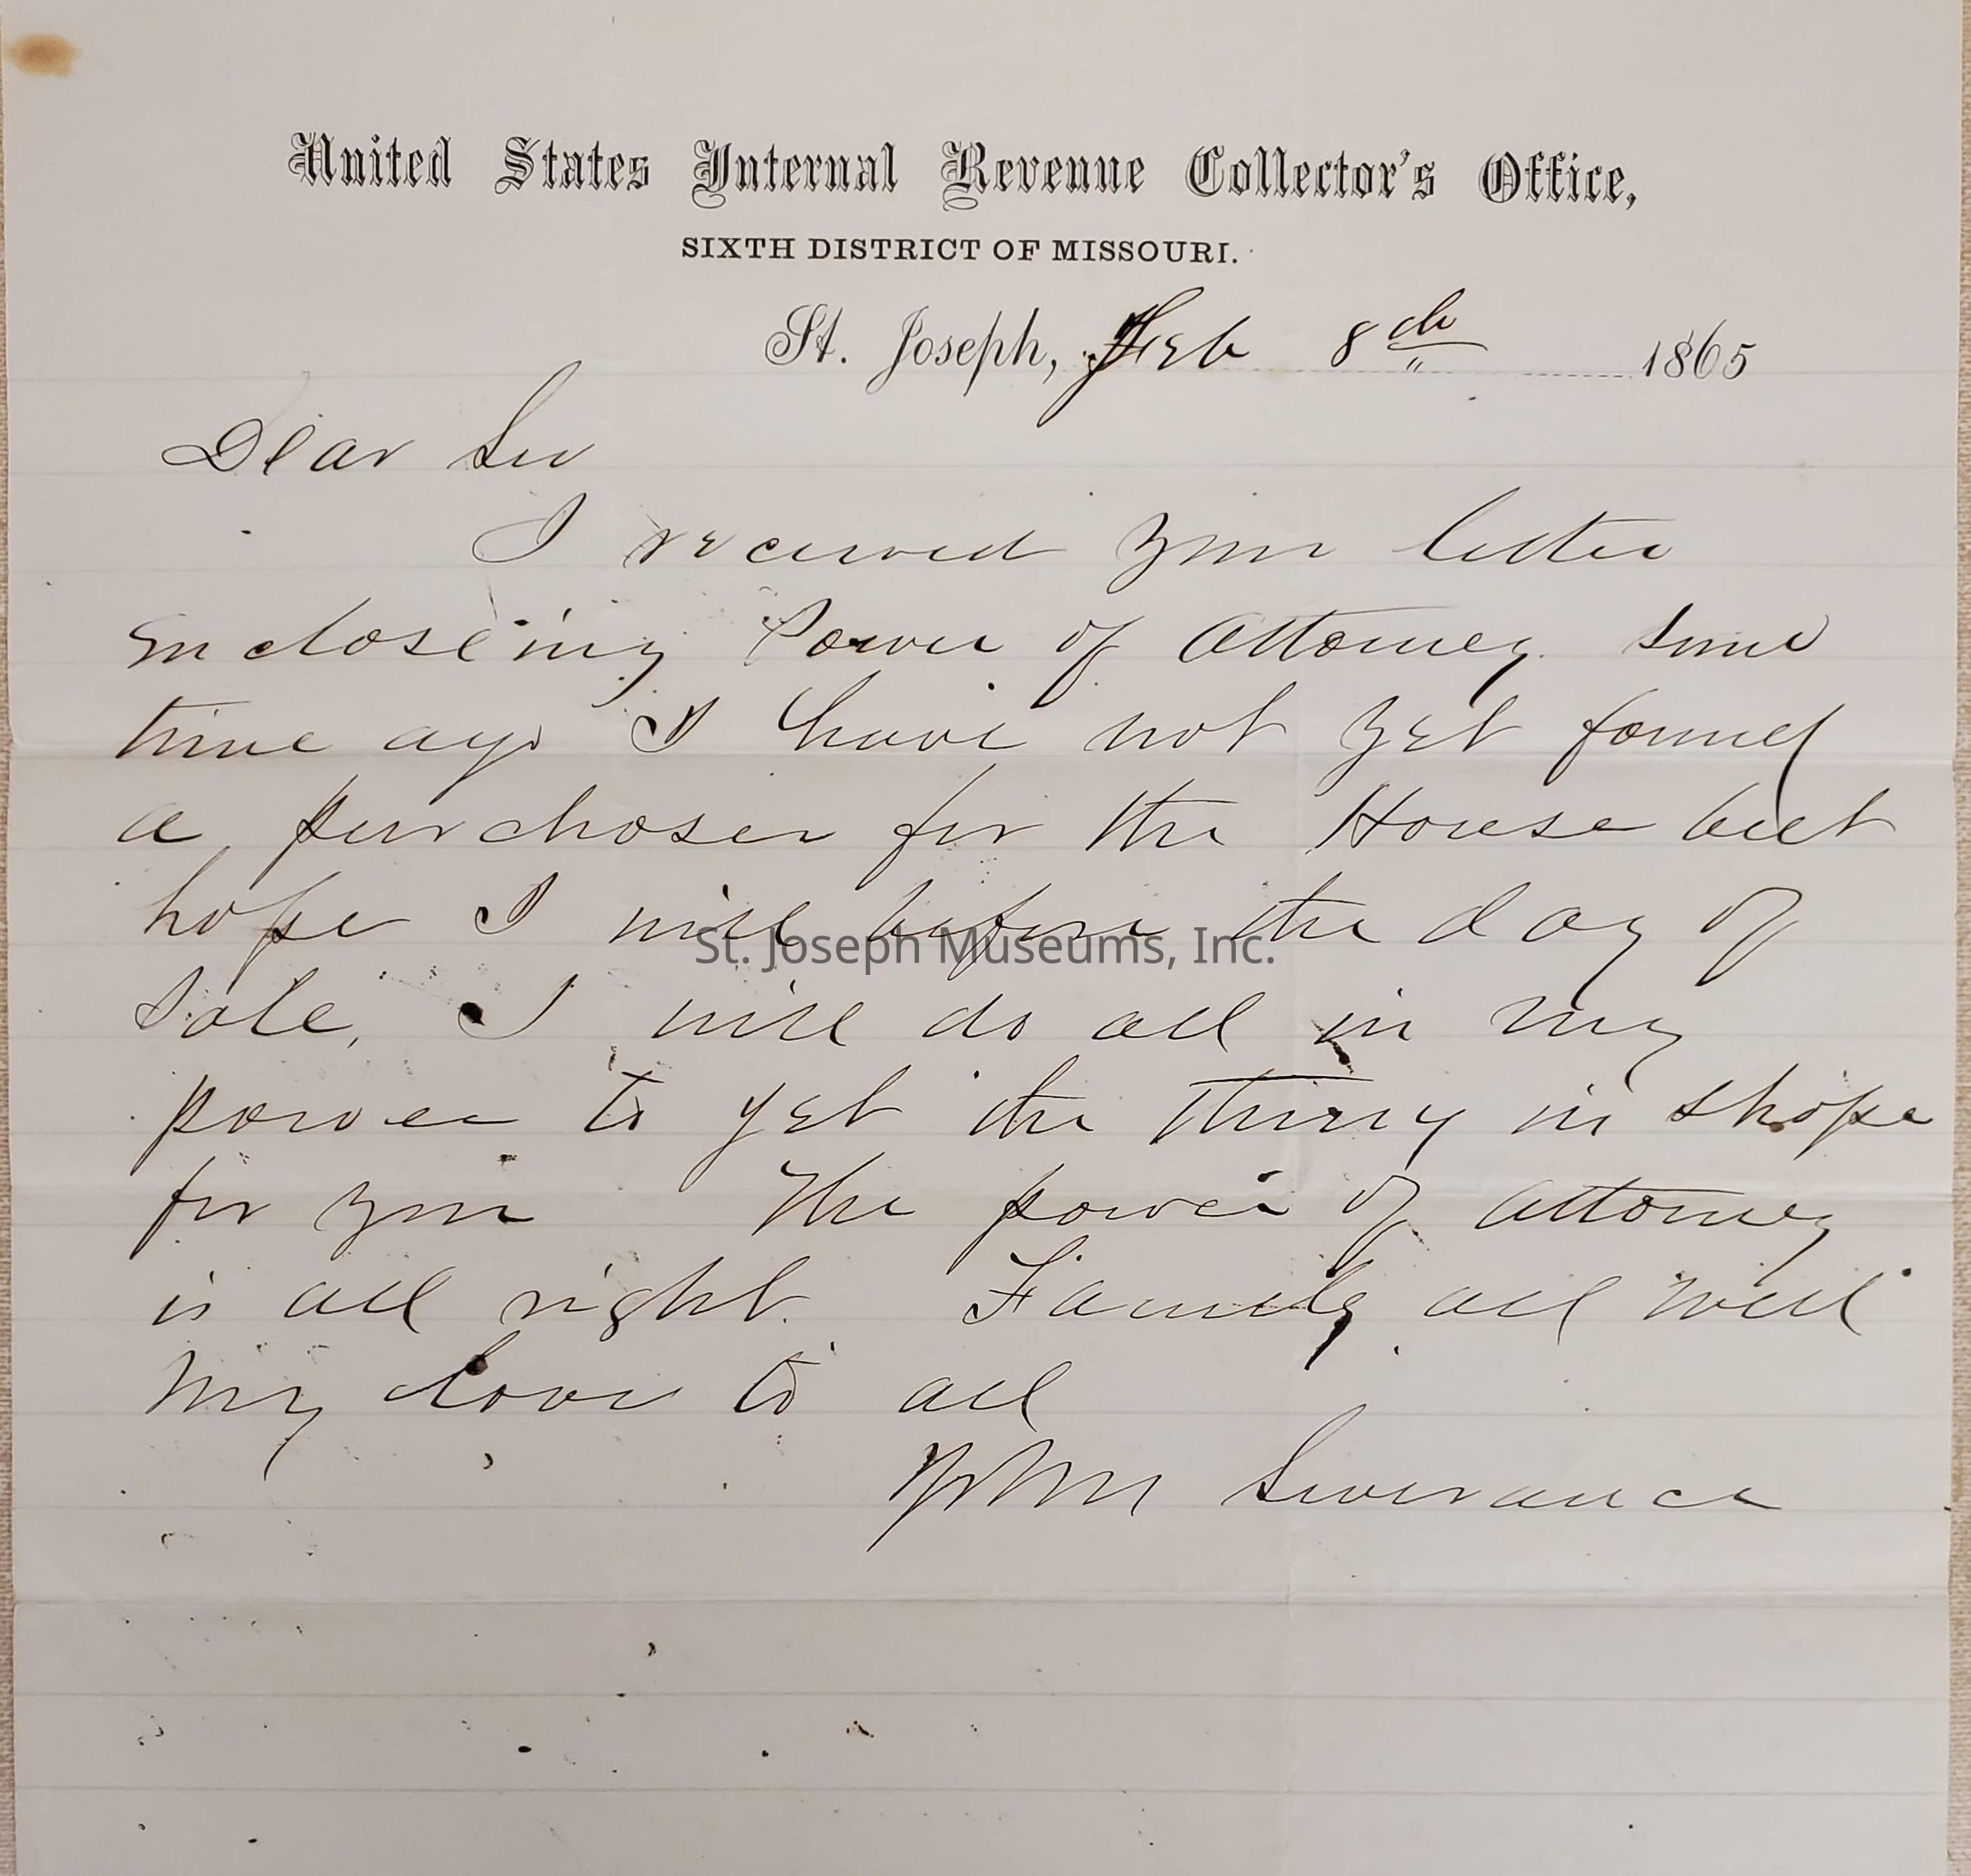 United States Internal Revenue Collector's Office,
SIXTH DISTRICT OF MISSOURI.
St. Joseph, Feb 8th 1865
Dear Sir
I received your letter
Encloseing Power of Attorney some
time ago I have not yet found
a purchaser for the House but
hope I will before the day of
Sale, I will do all in my
power to get the thing in shape
for you The power of attorney
is all right. Family all well
My love to all
John Severance
St. Joseph Museums, Inc.